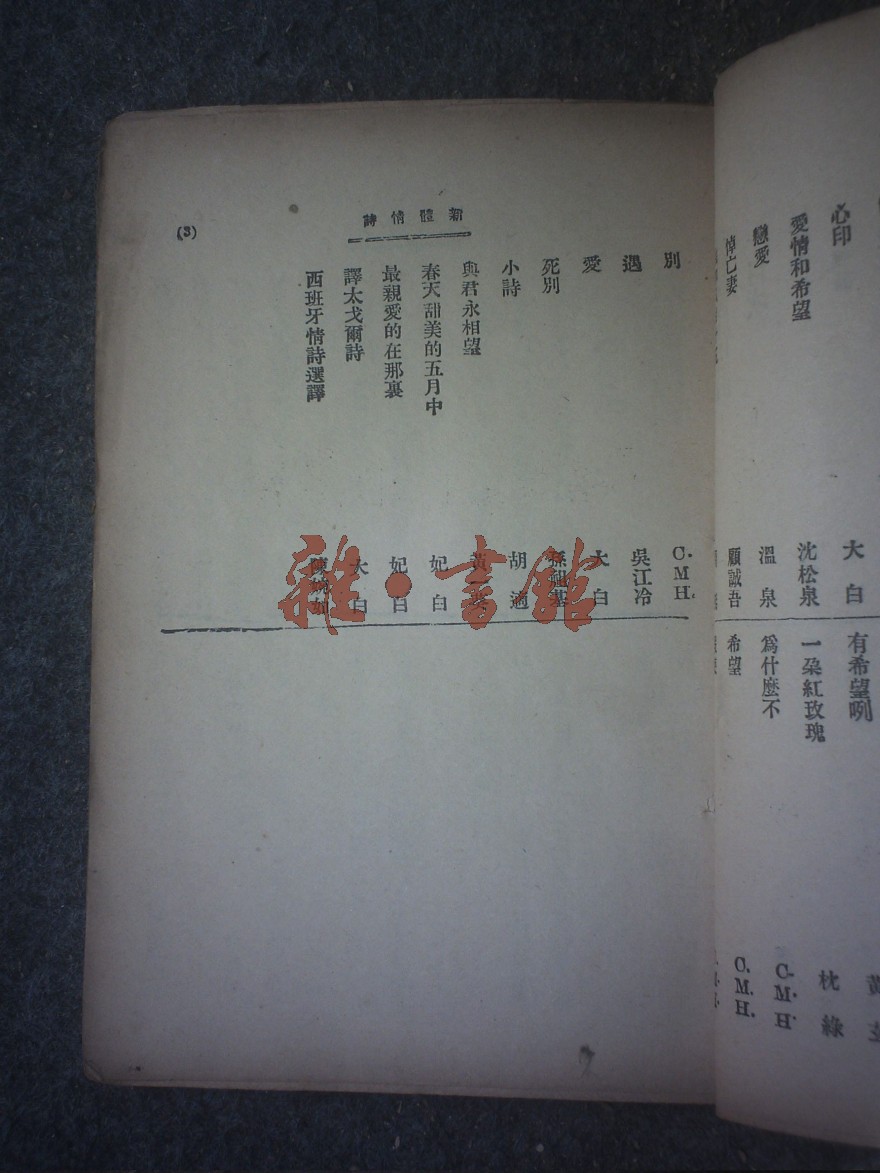 心印
大白
有希望咧
黃
愛情和希望
沈松泉
一朶紅玫瑰
枕綠
戀愛
溫泉
爲什麼不
C. M. H.
悼亡妻
顧誠吾
希望
C. M. H.
新體情詩
(3)
別
C. M. H.
遇
吳江冷
愛
大白
死別
小詩
胡適
與君永相望
春天甜美的五月中
妃白
最親愛的在那裏
妃白
譯太戈爾詩
大白
西班牙情詩選譯
雜·書館